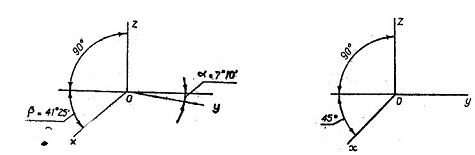 z
90°
α=7°10'
0
y
β=41°25'
x
z
90°
0
y
45°
x